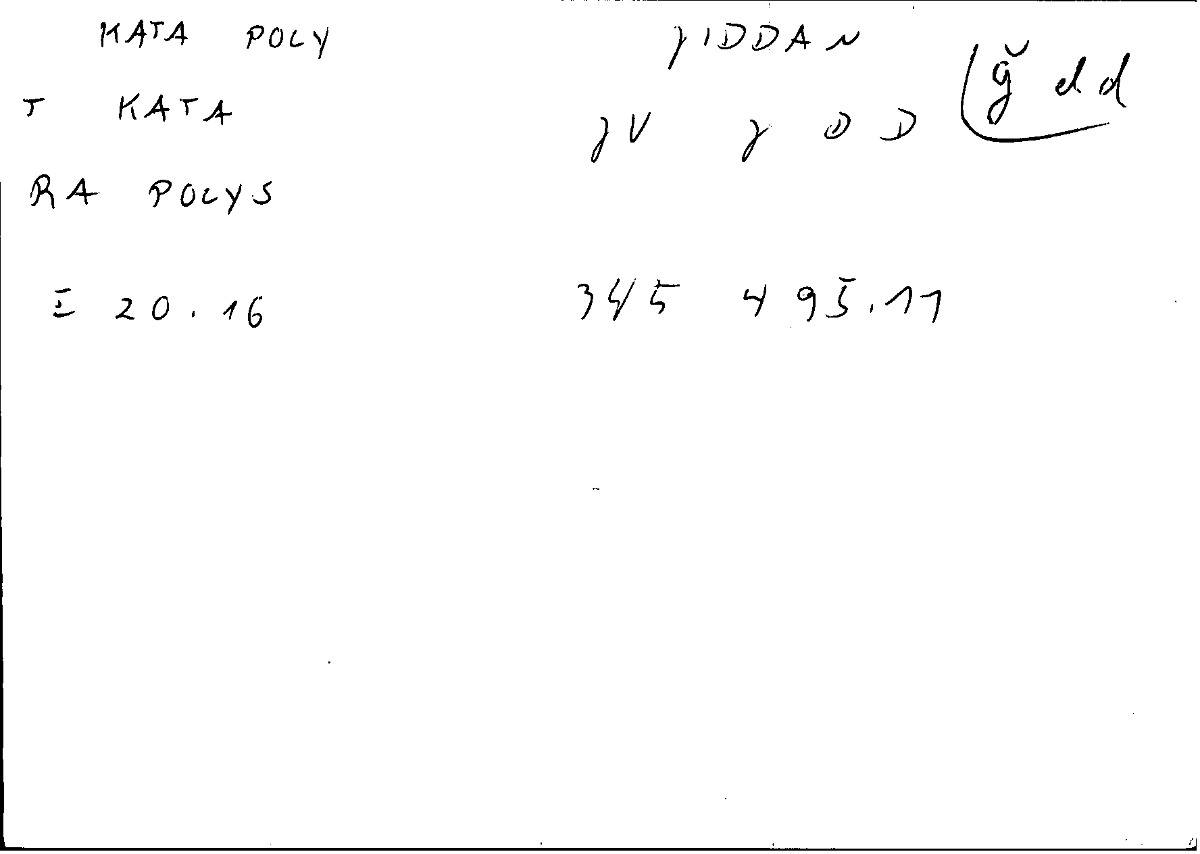 KATA POLY
T KATA
RA POLYS
Ξ 20.16
γIDDAN
γV γ D D
ğ dd
345 495.11